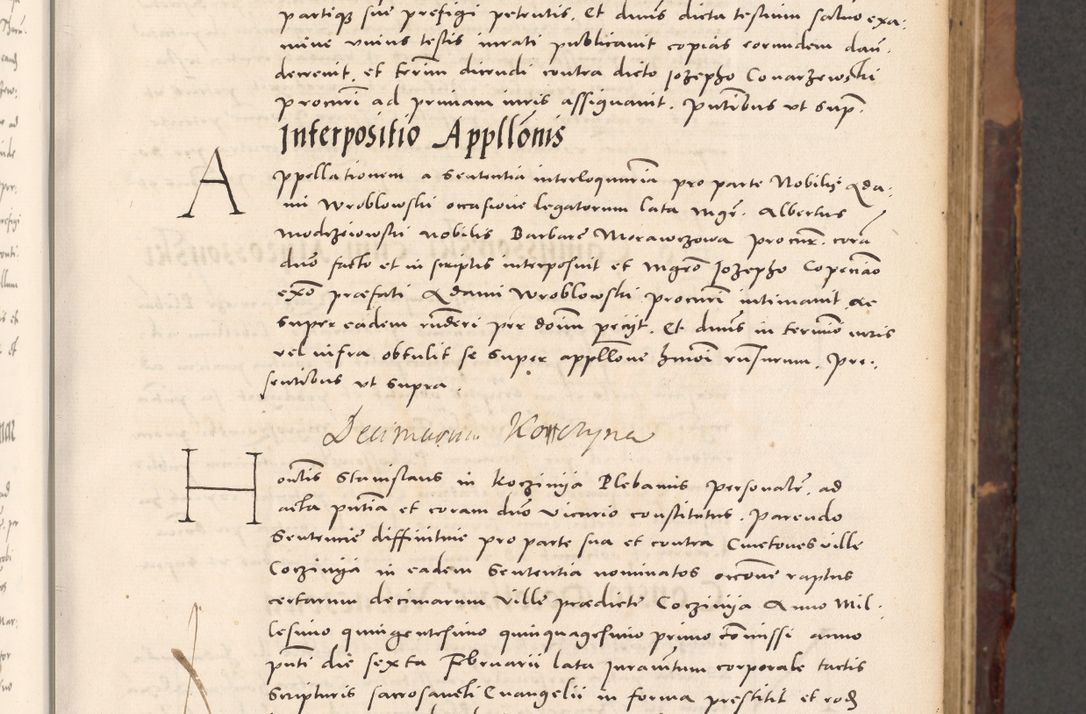 partiq₃ suę prefigi petentis. Et dnus dicta testium saluo exa-
mine vnius testis iurati publicauit copias eorundem dan.
decreuit, et termin dicendi contra dicto Jozepho Conarzewski
procuri ad primam iuris assignauit. Pntibus vt sup.
Interpositio Appllonis
Appellationem a sententia interloquutria pro parte Nobilis Ada-
mi Wroblowski occasione legatorum lata mgr. Albertus
Modrzeiowski nobilis Barbare Morawczowa procur. cora
dno facto et in scriptis interposuit et mgro Jozepho
exo præfati Adami Wroblowski procuri intimauit, Ac
super eadem rnderi per dnum petijt. Et dnus in termino iuris
vel infra obtulit se super appllone hmoi rnsurum. Pre-
sentibus vt supra.
Decimarum Korczyna
Honlis Stanislaus in Koczinija Plebanus personalr. ad
acta pntia et coram dno Vicario constitutus. Parendo
Sententie diffinitiue pro parte sua et contra Cmetones ville
Coczinija in eadem Sententia nominatos occone raptus
certarum decimarum Ville prædicte Coczinija Anno Mil-
lesimo quingentesimo quinquagesimo primo comissi anno
pnti die sexta Februarii lata Iuramtum corporale tactis
Scripturis sacrosancti Euangelii in forma prestitit et eod